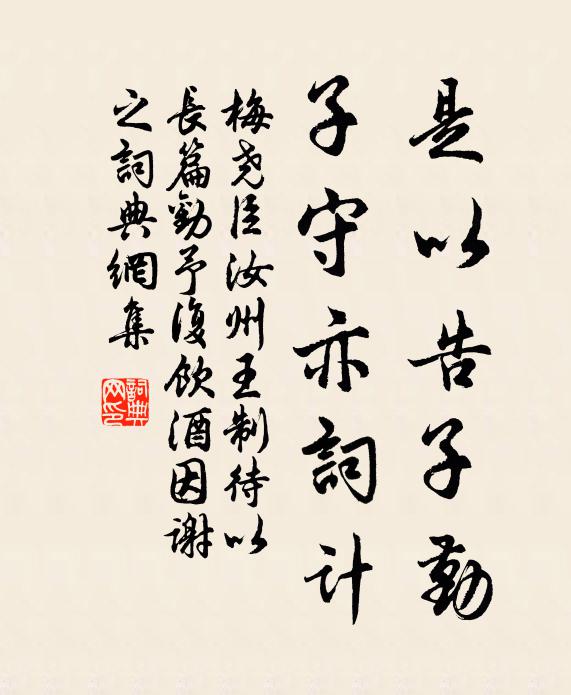 是以告子勤
子守亦詞计
梅尧臣汝州王制待以
長篇勸予復飲酒因谢
之詞典網集
詞典网印